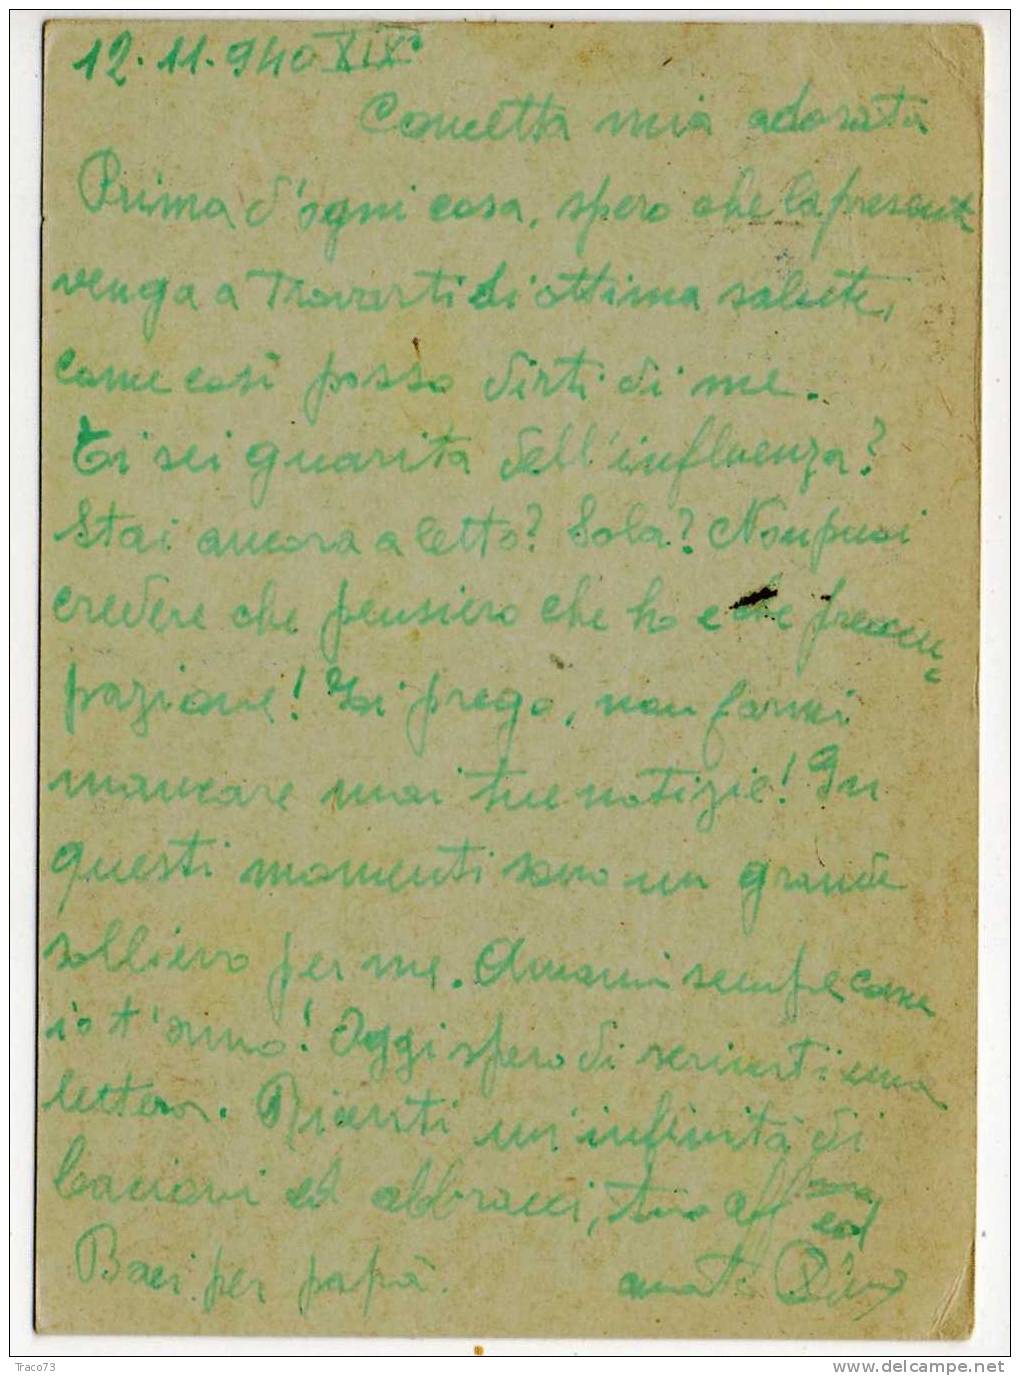 12.11.940 XIX°
Concetta mia adorata
Prima d'ogni cosa, spero che la presente
venga a trovarti di ottima salute,
come così posso dirti di me.
Ti sei guarita dell'influenza?
Stai ancora a letto? Sola? Non puoi
credere che pensiero che ho e che preoccu=
pazione! Ti prego, non farmi
mancare mai tue notizie! In
questi momenti sono un grande
sollievo per me. Amami sempre come
io t'amo! Oggi spero di scriverti una
lettera. Ricevti un'infinità di
bacioni ed abbracci, tuo aff.mo ed
Baci per papà. amato
Traco73
www.delcampe.net